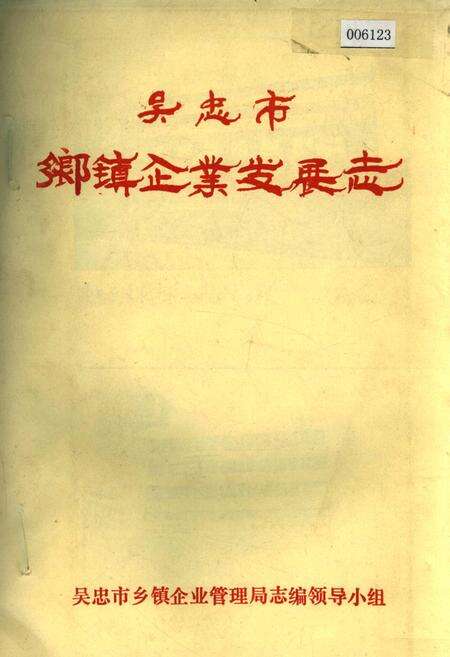 006123
吴忠市
鄉镇企業发展志
吴忠市乡镇企业管理局志编领导小组